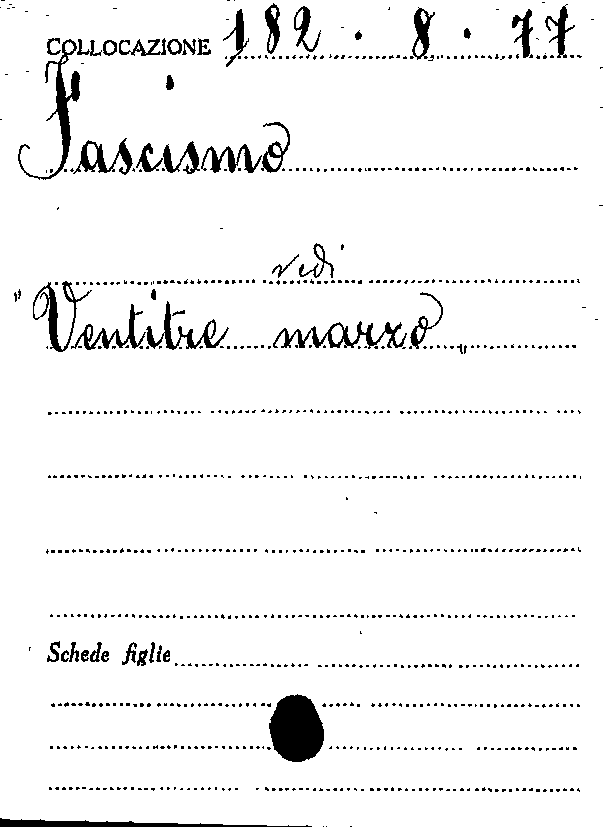 COLLOCAZIONE 182 . 8 . 77
Fascismo
vedi
"Ventitre marzo„
Schede figlie